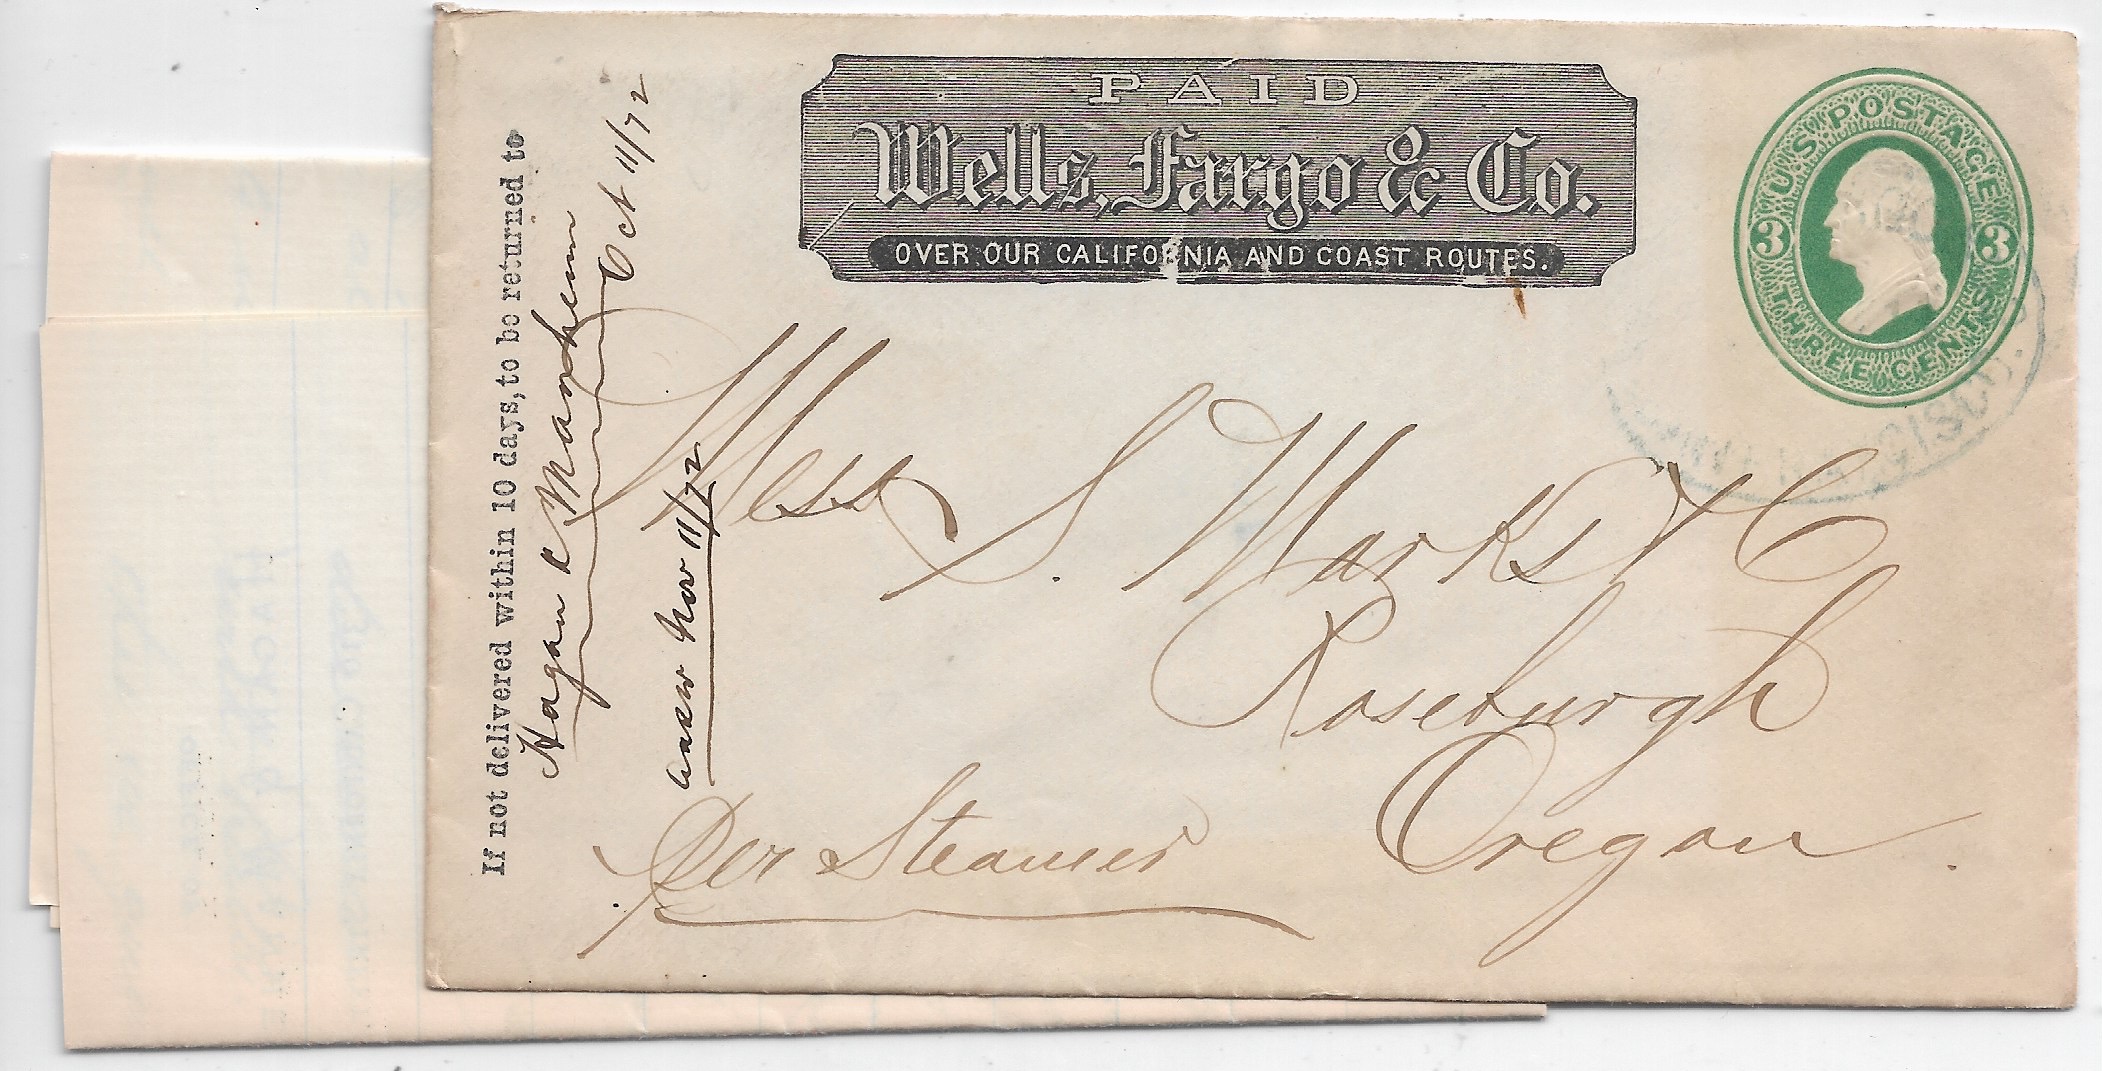 PAID
Wells, Fargo & Co.
OVER OUR CALIFORNIA AND COAST ROUTES.
U.S. POSTAGE
3 3
THREE CENTS
If not delivered within 10 days, to be returned to
Hagan & Manheim
Oct 11/72
answ Nov 11/72
Mess S. Marks & C
Roseburgh
Oregon.
Per Steamer